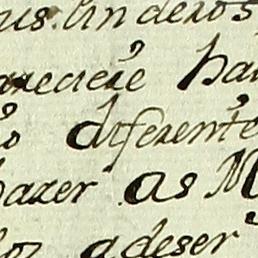 us. linderos
pareciere ha
o diferente
hazer as M
los a deser